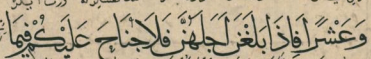 وَعَشْرًا فَإِذَا بَلَغْنَ أَجَلَهُنَّ فَلَا جُنَاحَ عَلَيْكُمْ فِيمَا